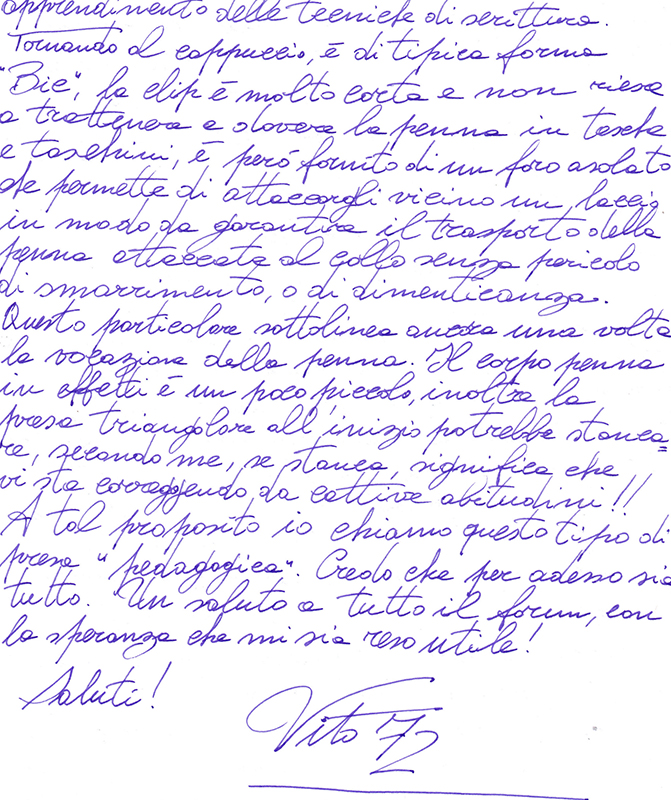 apprendimento delle tecniche di scrittura.
Tornando al cappuccio, è di tipica forma
"Bic", la clip è molto corta e non riesce
a trattenere a dovere la penna in tasche
e taschini, è però fornito di un foro asolato
che permette di attaccargli vicino un laccio
in modo da garantire il trasporto della
penna attaccata al collo senza pericolo
di smarrimento, o di dimenticanza.
Questo particolare sottolinea ancora una volta
la vocazione della penna. Il corpo penna
in effetti è un poco piccolo, inoltre la
presa triangolare all'inizio potrebbe stanca=
re, secondo me, se stanca, significa che
vi sta correggendo da cattive abitudini!!
A tal proposito io chiamo questo tipo di
presa "pedagogica". Credo che per adesso sia
tutto. Un saluto a tutto il forum, con
la speranza che mi sia reso utile!
Saluti!
Vito 72